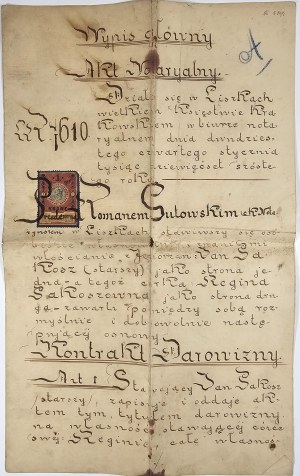 Wypis główny
Akt Notaryalny.
Działo się w Liszkach
wielkiem Księstwie Kra
LR 7610
kowskiem, w biurze nota
ryalnem dnia dwudzies
tego czwartego stycznia
tysiąc dziewięćset szóste
go roku.
Romanem Gutowskim c.k. Nota
ryuszem w Liszkach stawiwszy się oso
włościanie
kosz (starszy) jako strona je
dna, a tegoż Regina
Gakoszówna jako strona dru
ga zawarli pomiędzy sobą roz
myślnie i dobrowolnie nastę
pującej osnowy
Kontrakt Darowizny.
Art 1 Stawający Jan Gakosz
/starszy/, zapisuje i oddaje ak
tem tym, tytułem darowizny
na własność stawającej córce
swej Reginie, całe własnoś